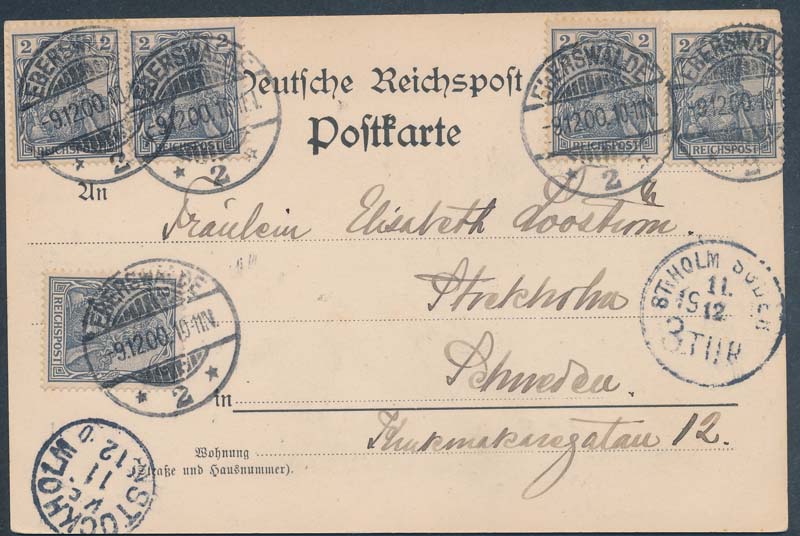 2 2 2 2
EBERSWALDE EBERSWALDE EBERSWALDE EBERSWALDE
-9.12.00.10-11V. -9.12.00.10-11V. -9.12.00.10-11V. -9.12.00.10-11V.
REICHSPOST REICHSPOST REICHSPOST REICHSPOST
* 2 * * 2 * * 2 * * 2
Deutsche Reichspost
Postkarte
An
Fräulein Elisabeth
Stockholm
Schweden.
12.
in
Wohnung
(Straße und Hausnummer).
REICHSPOST
EBERSWALDE
-9.12.00.10-11V.
* 2 *
ST.HOLM SÖDER
11.
19 12
3.TUR
STOCKHOLM
11
12